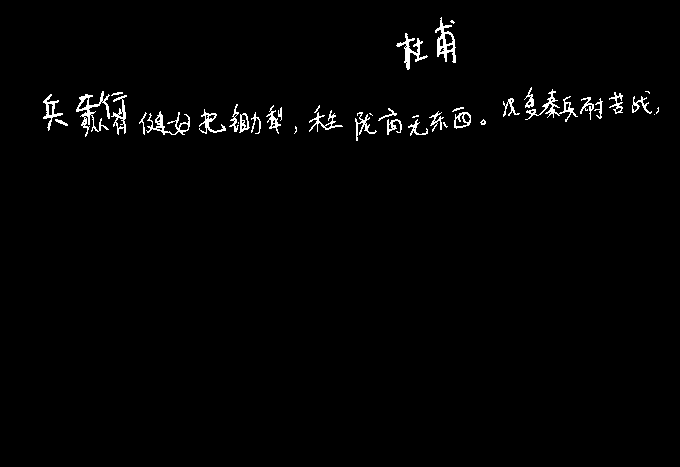 杜甫
兵车行
纵有健妇把锄犁,禾生陇亩无东西。况复秦兵耐苦战,